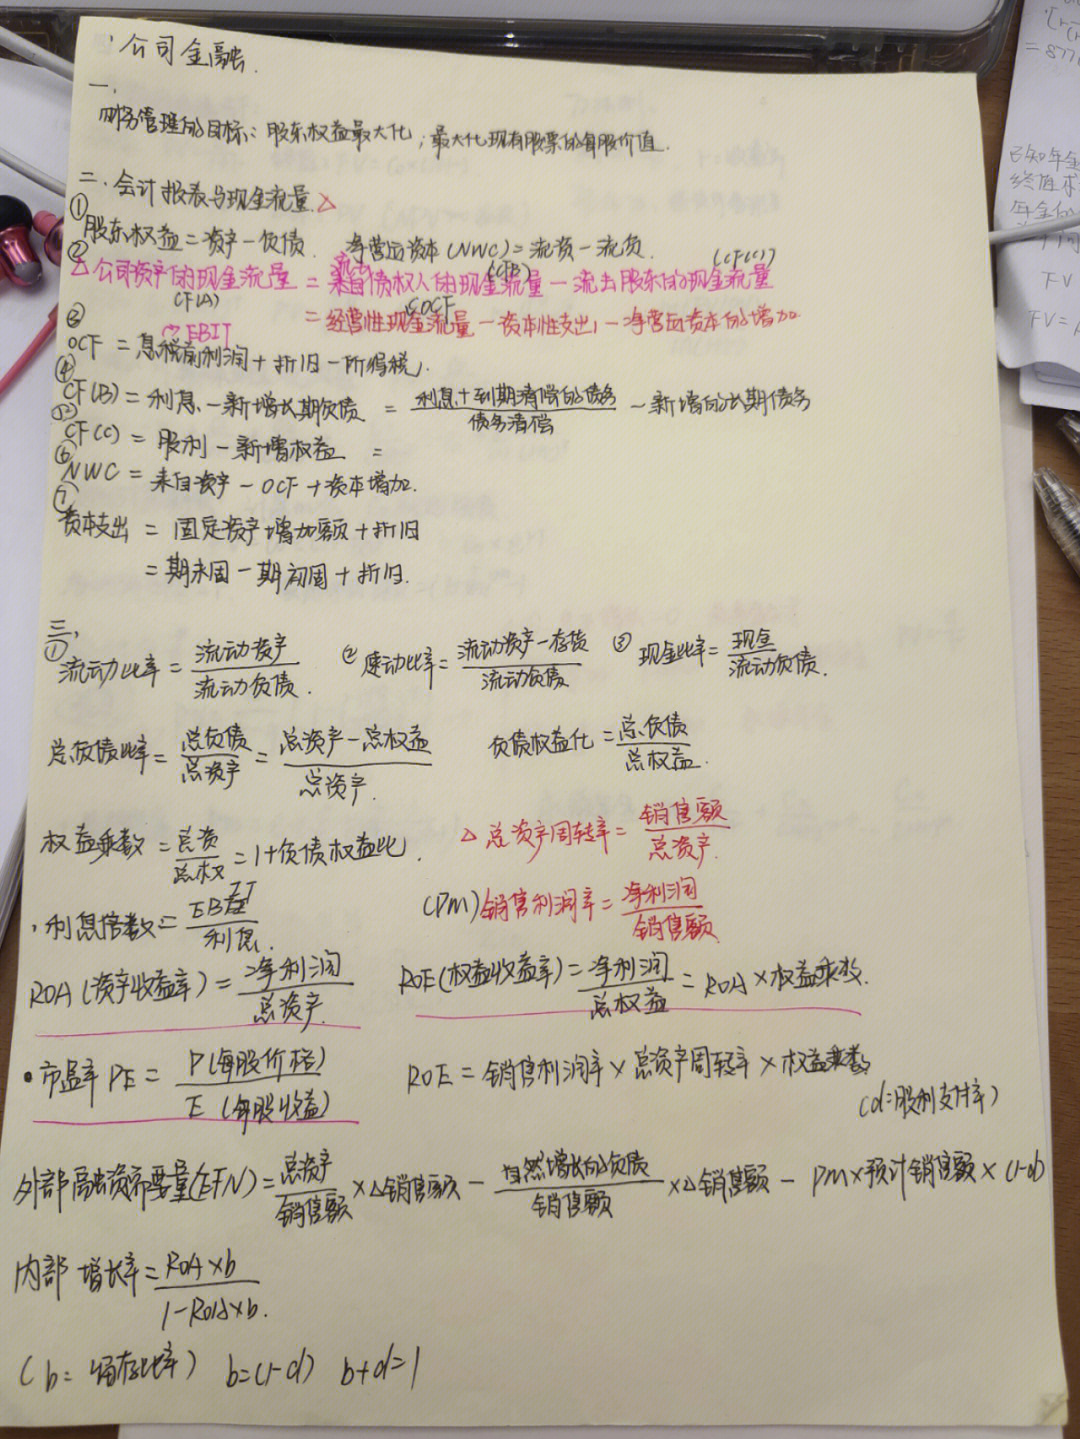 公司金融.
一、
财务管理的目标: 股东权益最大化; 最大化现有股票的每股价值.
二、会计报表与现金流量 △
① 股东权益=资产-负债. 净营运资本(NWC)=流资-流负.
② △公司资产的现金流量 = 流去债权人的现金流量 - 流去股东的现金流量
CF(A) (CFB) (CF(C))
= 经营性现金流量 - 资本性支出 - 净营运资本的增加
OCF
③ EBIT
OCF = 息税前利润+折旧-所得税.
④ CF(B) = 利息-新增长期负债 = 利息+到期清偿的债务 - 新增的长期债务
债务清偿
⑤ CF(C) = 股利-新增权益 =
⑥ NWC = 来自资产-OCF+资本增加.
⑦ 资本支出 = 固定资产增加额+折旧
= 期末固-期初固+折旧.
三、
① 流动比率=流动资产/流动负债. ② 速动比率=流动资产-存货/流动负债 ③ 现金比率=现金/流动负债.
总负债比率=总负债/总资产=总资产-总权益/总资产. 负债权益比=总负债/总权益.
权益乘数=总资/总权=1+负债权益比. △总资产周转率=销售额/总资产.
·利息倍数=EBIT/利息. (PM)销售利润率=净利润/销售额
ROA(资产收益率)=净利润/总资产. ROE(权益收益率)=净利润/总权益=ROA×权益乘数.
·市盈率 PE = P(每股价格)/E(每股收益) ROE=销售利润率×总资产周转率×权益乘数
(d=股利支付率)
外部融资需要量(EFN)=总资产/销售额×△销售额-自然增长的负债/销售额×△销售额-PM×预计销售额×(1-d)
内部增长率=ROA×b/1-ROA×b.
(b=留存比率) b=(1-d) b+d=1
已知年金
终值求
年金的
FV
FV=A